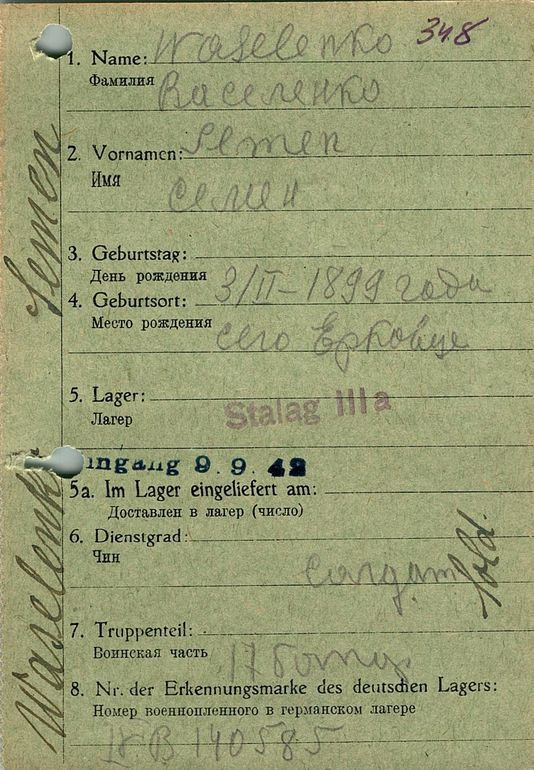 348
1. Name: Waselenko
Фамилия Василенко
2. Vornamen: Semen
Имя Семен
3. Geburtstag:
День рождения 3/II-1899 года
4. Geburtsort:
Место рождения село Ерковце
5. Lager:
Лагер Stalag IIIa
Eingang 9. 9. 42
5a. Im Lager eingeliefert am:
Доставлен в лагер (число)
6. Dienstgrad:
Чин Sold.
7. Truppenteil:
Воинская часть 17
8. Nr. der Erkennungsmarke des deutschen Lagers:
Номер военнопленного в германском лагере
IV B 140585
Waselenko Semen